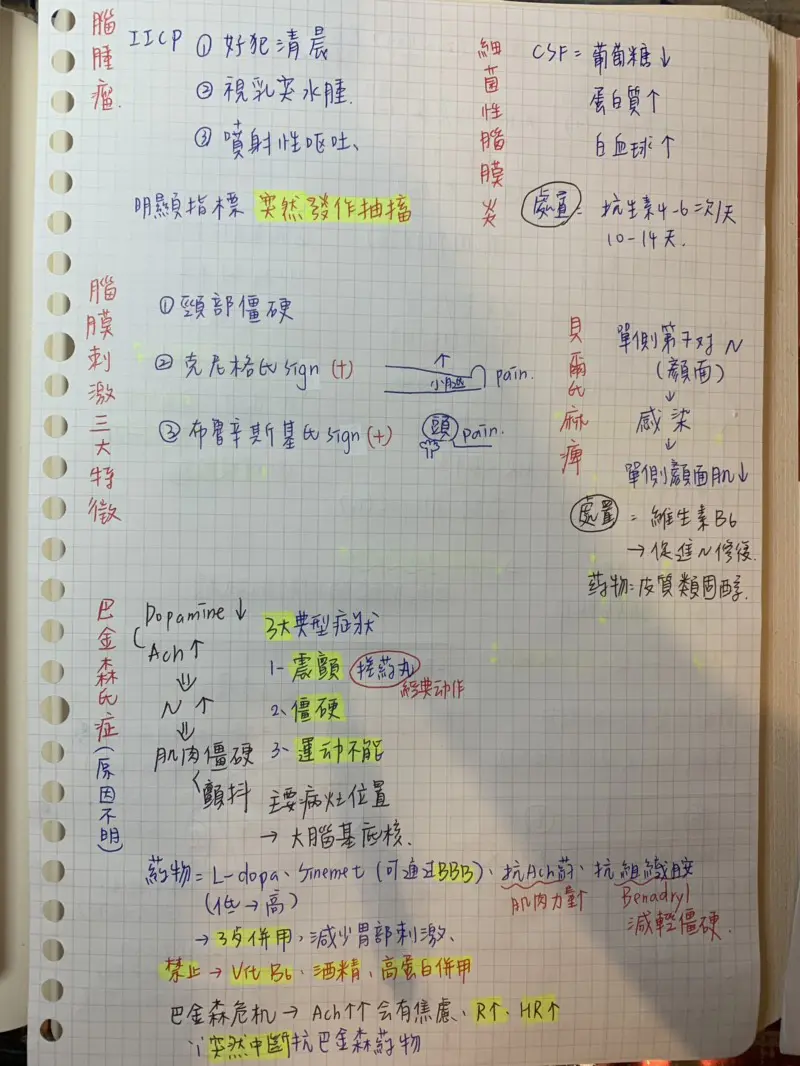 腦腫瘤.
IICP ① 好犯清晨
② 視乳突水腫.
③ 噴射性嘔吐、
明顯指標 突然發作抽搐
細菌性腦膜炎
CSF = 葡萄糖↓
蛋白質↑
白血球↑
處置 = 抗生素4-6次/天
10-14天.
腦膜刺激三大特徵
① 頸部僵硬
② 克尼格氏sign (+) ↑ 小腿 pain.
③ 布魯辛斯基氏sign (+) 頭 pain.
貝爾氏麻痺
單側第7对N
(顏面)
↓
感染
↓
單側顏面肌↓
處置 = 維生素B6
→促進N修復.
药物=皮質類固醇.
巴金森氏症(原因不明)
Dopamine↓
Ach↑
⇓
N↑
⇓
肌肉僵硬
顫抖
3大典型症狀
1- 震顫 搓药丸
經典动作
2、僵硬
3、運动不能
主要病灶位置
→ 大腦基底核.
药物= L-dopa、Sinemet (可通过BBB)、抗Ach药、抗組織胺
(低→高) 肌肉力量↑ Benadryl
減輕僵硬.
→ 3歺併用,減少胃部刺激、
禁止→ Vit B6、酒精、高蛋白併用
巴金森危机→ Ach↑↑会有焦慮、R↑、HR↑
∵突然中斷抗巴金森药物